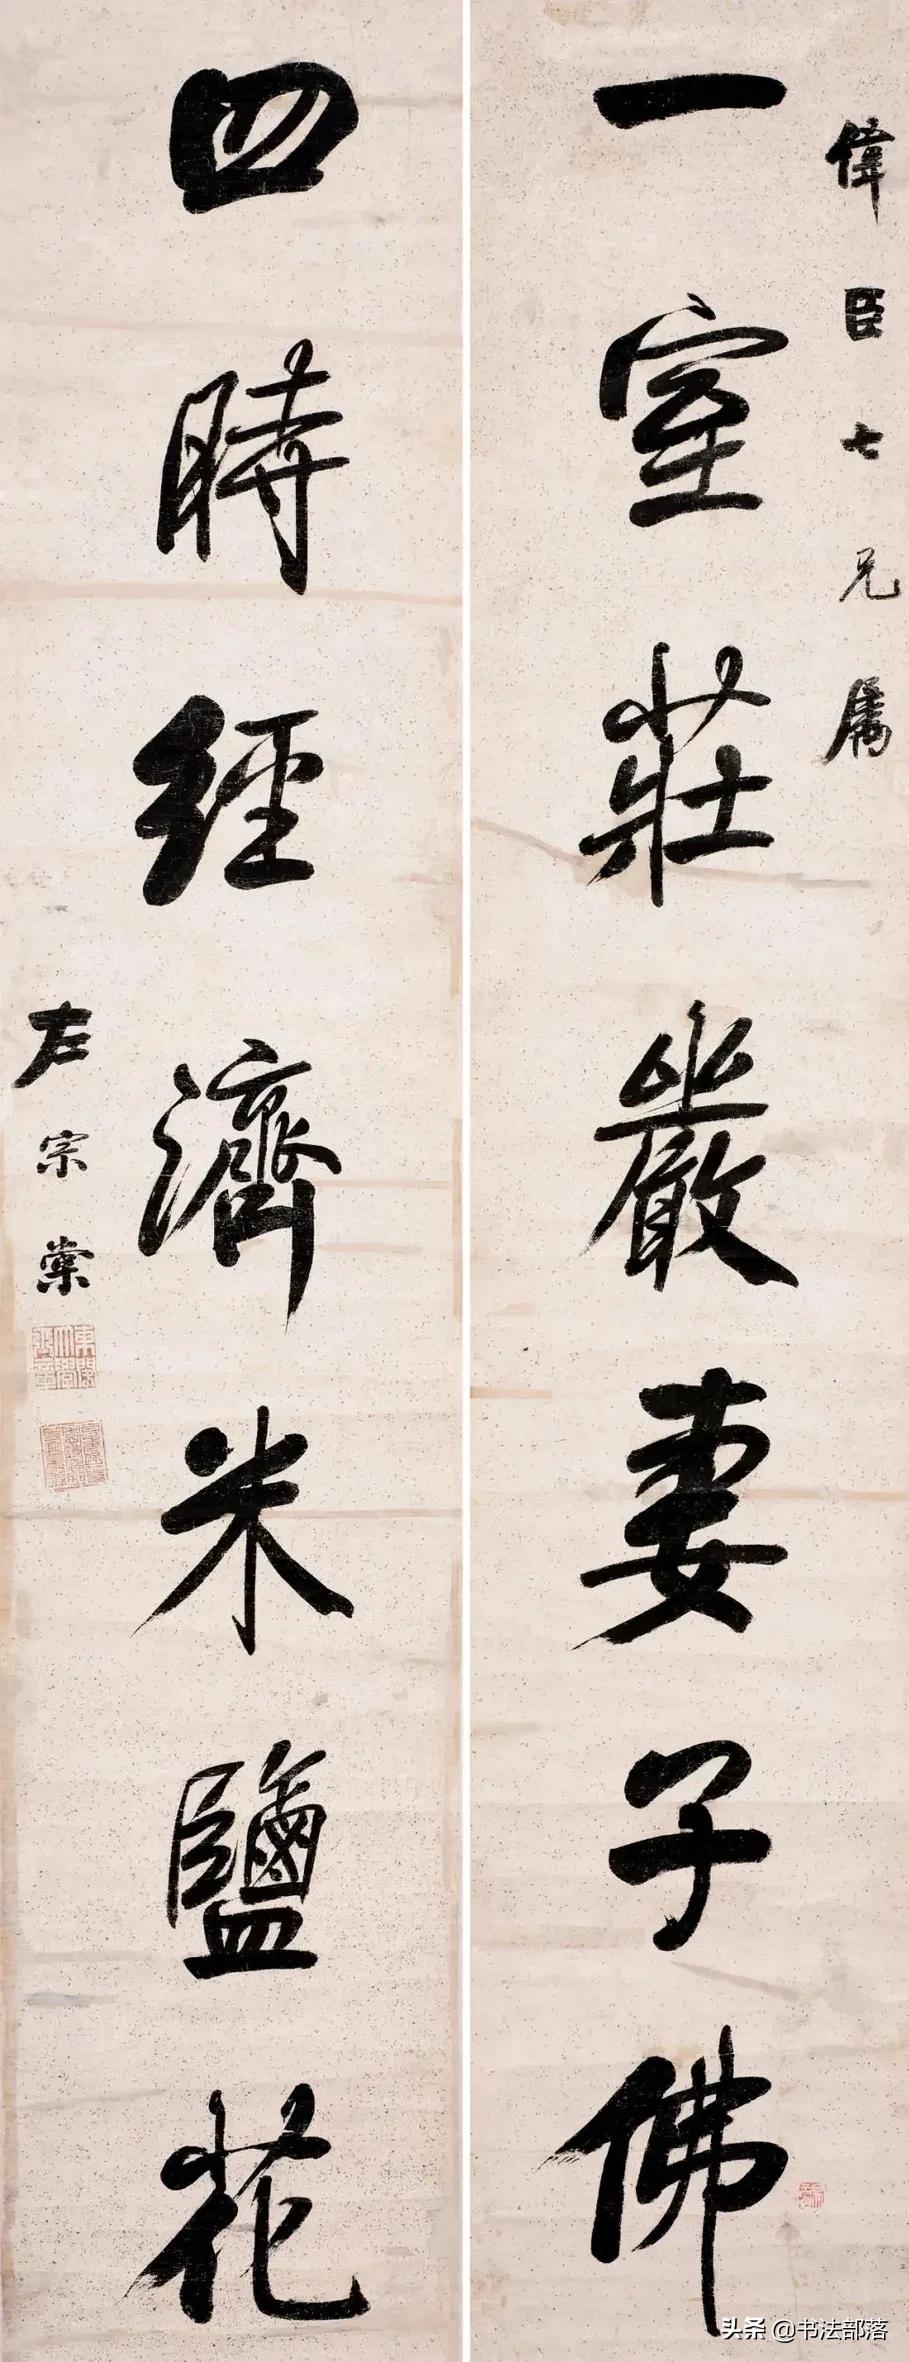 偉臣七兄屬
一室莊嚴妻子佛
四時經濟米鹽花
左宗棠
头条 @书法部落